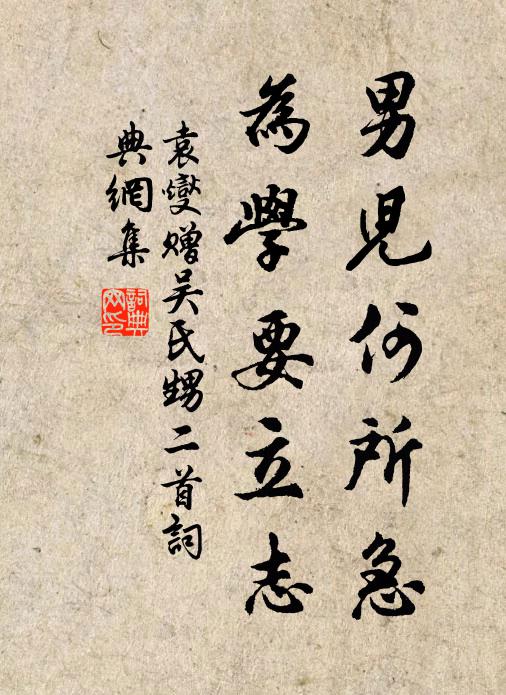 男兒何所急
為學要立志
袁燮贈吴氏甥二首詞
典網集
詞典
网印